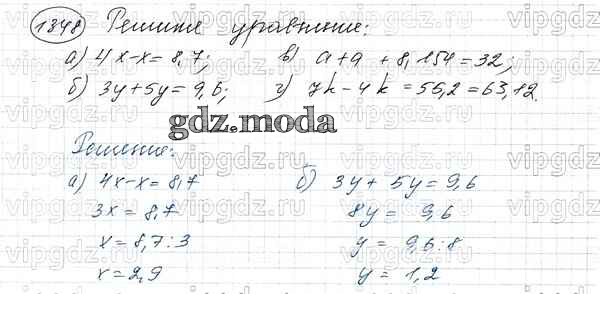 1348 Решите уравнение:
а) 4x-x=8,7; в) a+a+8,154=32;
б) 3y+5y=9,6; г) 7k-4k=55,2=63,12.
gdz.moda
Решение:
а) 4x-x=8,7 б) 3y+5y=9,6
3x=8,7 8y=9,6
x=8,7:3 y=9,6:8
x=2,9 y=1,2